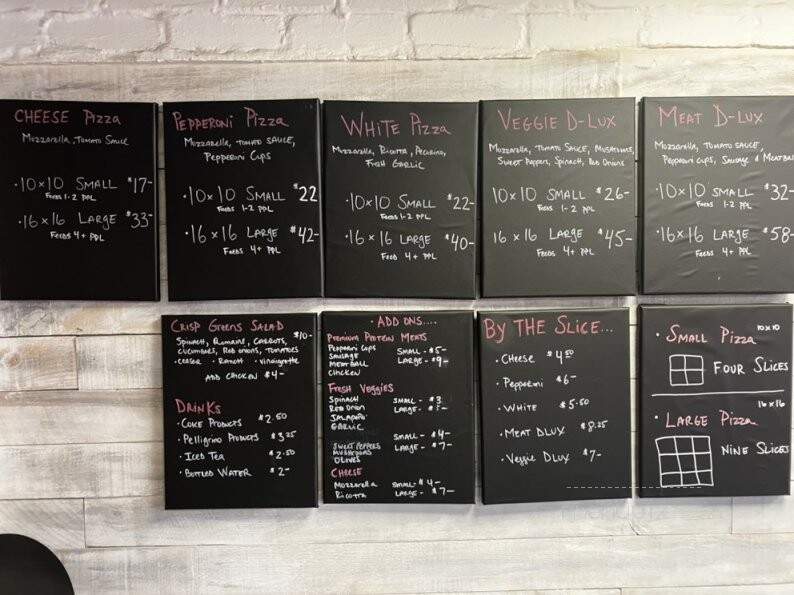 CHEESE Pizza
Mozzarella, Tomato Sauce
· 10 x 10 SMALL $17-
Feeds 1-2 PPL
· 16 x 16 LARGE $33-
Feeds 4+ PPL
PEPPERONI PIZZA
MOZZARELLA, TOMATO SAUCE,
PEPPERONI CUPS
· 10 x 10 SMALL $22
Feeds 1-2 PPL
· 16 x 16 LARGE $42-
Feeds 4+ PPL
WHITE PIZZA
MOZZARELLA, RICOTTA, PECORINO,
FRESH GARLIC
· 10 x 10 SMALL $22-
Feeds 1-2 PPL
· 16 x 16 LARGE $40-
Feeds 4+ PPL
VEGGIE D-LUX
MOZZARELLA, TOMATO SAUCE, MUSHROOMS,
SWEET PEPPERS, SPINACH, RED ONIONS
10 x 10 SMALL $26-
Feeds 1-2 PPL
16 x 16 LARGE $45-
Feeds 4+ PPL
MEAT D-LUX
MOZZARELLA, TOMATO SAUCE,
PEPPERONI CUPS, SAUSAGE & MEATBALL
· 10 x 10 SMALL $32-
Feeds 1-2 PPL
· 16 x 16 LARGE $58-
Feeds 4+ PPL
CRISP GREENS SALAD
SPINACH, ROMAINE, CARROTS, $10-
CUCUMBERS, RED ONIONS, TOMATOES
· CEASER · RANCH · VINAIGRETTE
ADD CHICKEN $4-
DRINKS
· COKE PRODUCTS $2.50
· PELLIGRINO PRODUCTS $3.25
· ICED TEA $2.50
· BOTTLED WATER $2-
· ADD ONS....
PREMIUM PROTEIN MEATS
PEPPERONI CUPS SMALL - $5-
SAUSAGE LARGE - $9-
MEATBALL
CHICKEN
FRESH VEGGIES
SPINACH SMALL - $3
RED ONION LARGE -
JALAPEÑO
GARLIC
SMALL - $4-
SWEET PEPPERS LARGE - $7-
MUSHROOMS
OLIVES
CHEESE
MOZZARELLA SMALL - $4-
RICOTTA LARGE - $7-
BY THE SLICE...
· CHEESE $4.50
· PEPPERONI $6-
· WHITE $5.50
· MEAT DLUX $8.25
· VEGGIE DLUX $7-
· SMALL PIZZA 10x10
FOUR SLICES
16x16
· LARGE PIZZA
NINE SLICES